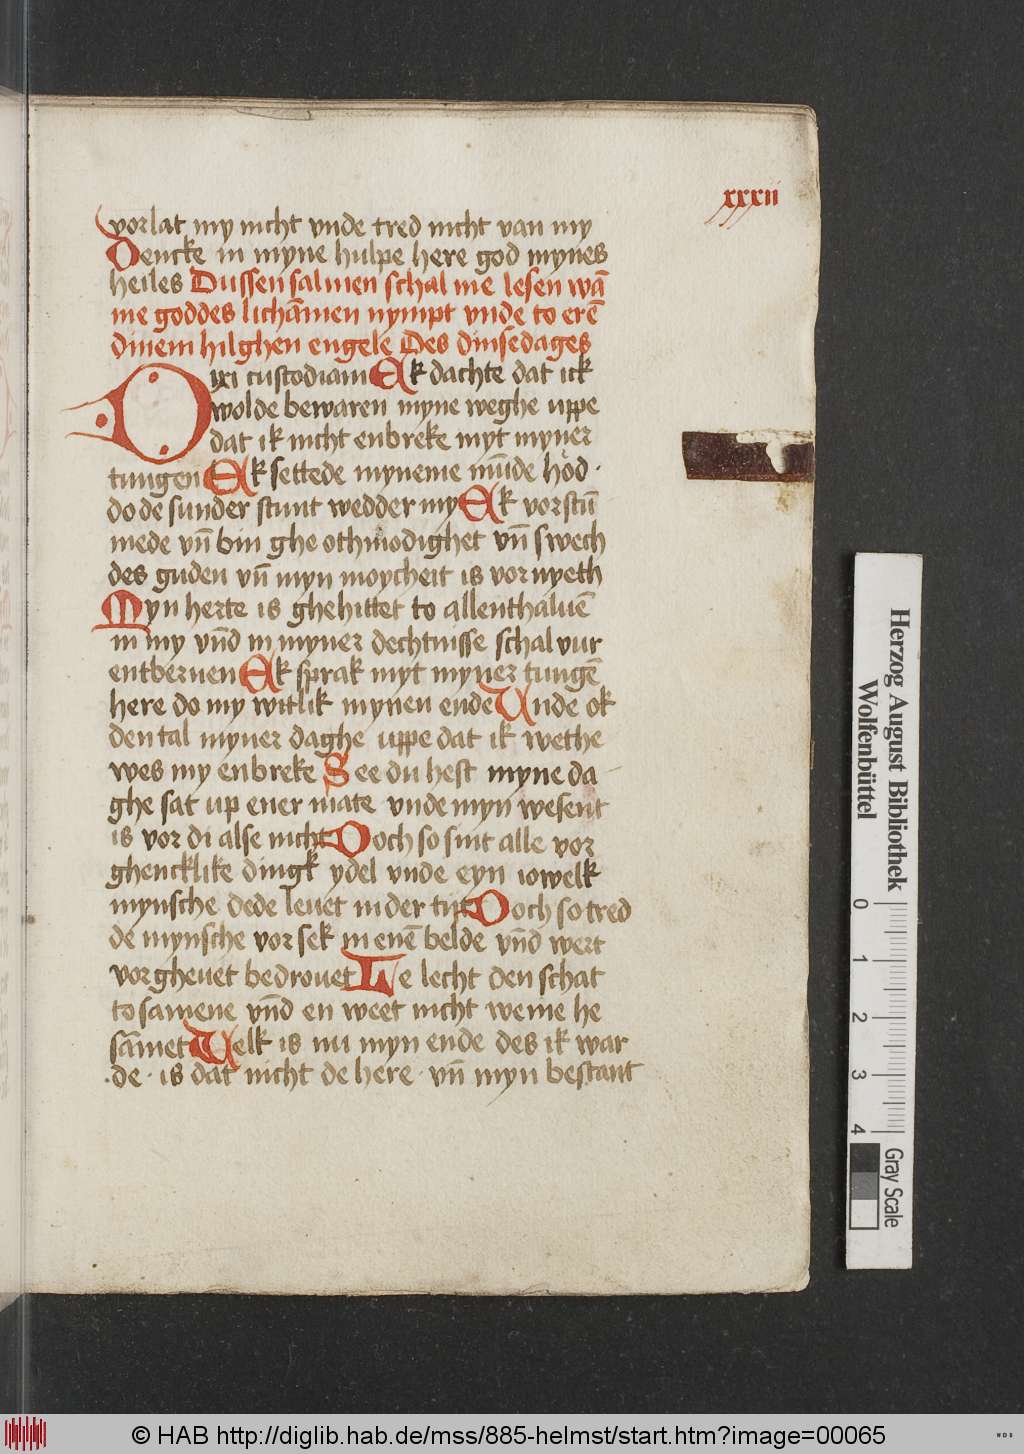 xxxii
vorlat my nicht vnde tred nicht van my
Dencke in myne hulpe here god mynes
heiles Dussen salmen schal me lesen wā
me goddes lichāmen nympt vnde to erē
dinem hilghen engele Des dinsedages
Dixi custodiam Ek dachte dat ick
wolde bewaren myne weghe uppe
dat ik nicht enbreke myt myner
tungen Ek settede myneme mūde hod ·
do de sunder stunt wedder my Ek vorstū
mede vn̄ bin ghe othmodighet vn̄ swech
des guden vn̄ myn moycheit is vornyeth
Myn herte is ghehittet to allenthaluē
in my vn̄d in myner dechtnisse schal vur
entbernen Ek sprak myt myner tungē
here do my witlik mynen ende Unde ok
den tal myner daghe uppe dat ik wethe
wes my enbreke See du hest myne da
ghe sat up ener mate vnde myn wesent
is vor di alse nicht Doch so sint alle vor
ghencklike dingk ydel vnde eyn iowelk
mynsche dede leuet in der tyt Doch so tred
de mynsche vor sek in enē belde vn̄d wert
vorgheuet bedrouet Le lecht den schat
to samene vn̄d en weet nicht weme he
sāmet Welk is nu myn ende des ik war
· de · is dat nicht de here · vn̄ myn bestant
Herzog August Bibliothek
Wolfenbüttel
0 1 2 3 4
Gray Scale
© HAB http://diglib.hab.de/mss/885-helmst/start.htm?image=00065